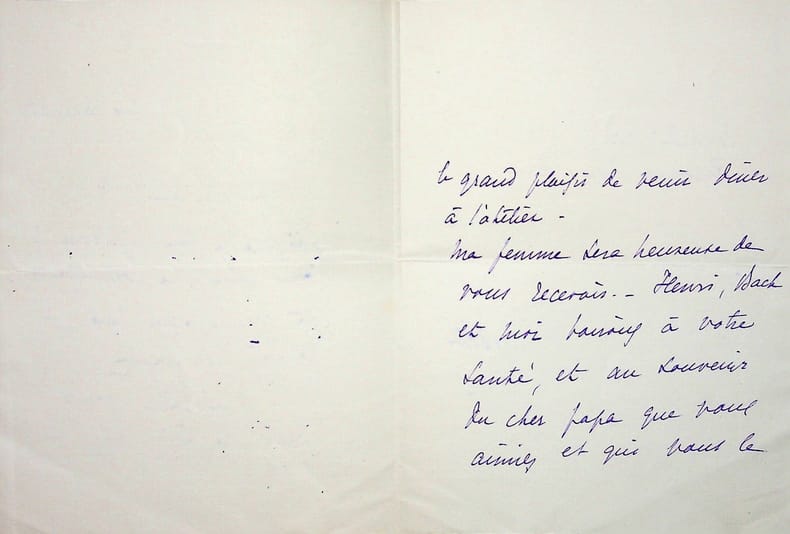 le grand plaisir de venir dîner
à l'atelier -
Ma femme sera heureuse de
vous recevoir. - Henri, Bach
et moi boirons à votre
santé, et au souvenir
du cher papa que vous
aimiez et qui vous le